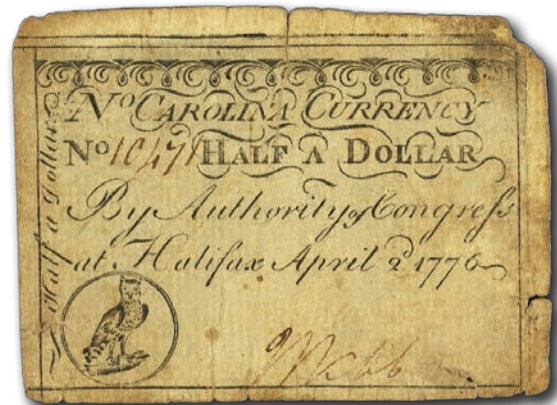 No CAROLINA CURRENCY
No 10471 HALF A DOLLAR
By Authority of Congreſs
at Halifax April 2d 1776
Half a Dollar
Webb